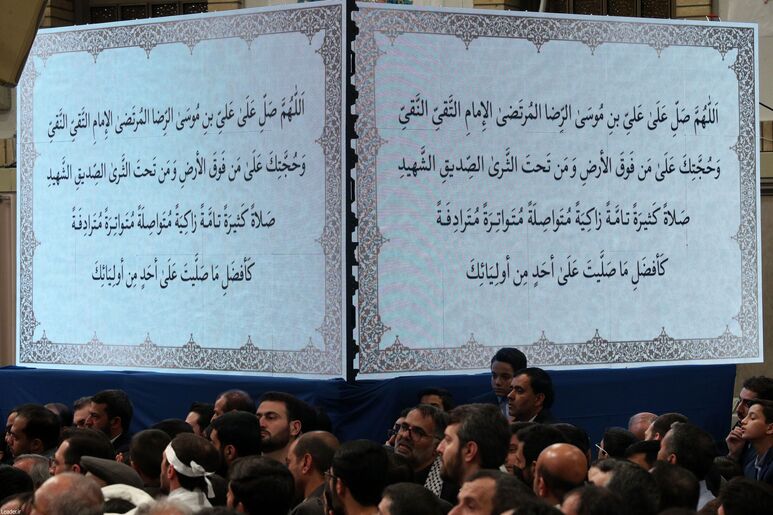 اَللّٰهُمَّ صَلِّ عَلَىٰ عَلِيِّ بنِ مُوسَى الرِّضا المُرتَضىٰ الإمامِ التَّقِيِّ النَّقِيِّ
وَحُجَّتِكَ عَلىٰ مَن فَوقَ الأرضِ وَمَن تَحتَ الثَّرىٰ الصِّديقِ الشَّهيدِ
صَلاةً كَثيرَةً تامَّةً زاكِيَةً مُتَواصِلَةً مُتَواتِرَةً مُتَرادِفَةً
كَأفضَلِ مَا صَلَّيتَ عَلىٰ أحَدٍ مِن أوليَائِكَ
اَللّٰهُمَّ صَلِّ عَلَىٰ عَلِيِّ بنِ مُوسَى الرِّضا المُرتَضىٰ الإمامِ التَّقِيِّ النَّقِيِّ
وَحُجَّتِكَ عَلىٰ مَن فَوقَ الأرضِ وَمَن تَحتَ الثَّرىٰ الصِّديقِ الشَّهيدِ
صَلاةً كَثيرَةً تامَّةً زاكِيَةً مُتَواصِلَةً مُتَواتِرَةً مُتَرادِفَةً
كَأفضَلِ مَا صَلَّيتَ عَلىٰ أحَدٍ مِن أوليَائِكَ
Leader.ir